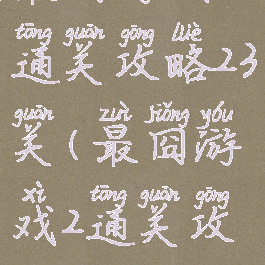 tōng guān gōng lüè
通关攻略23
guān zuì jiǒng yóu
关(最囧游
xì tōng guān gōng
戏2通关攻